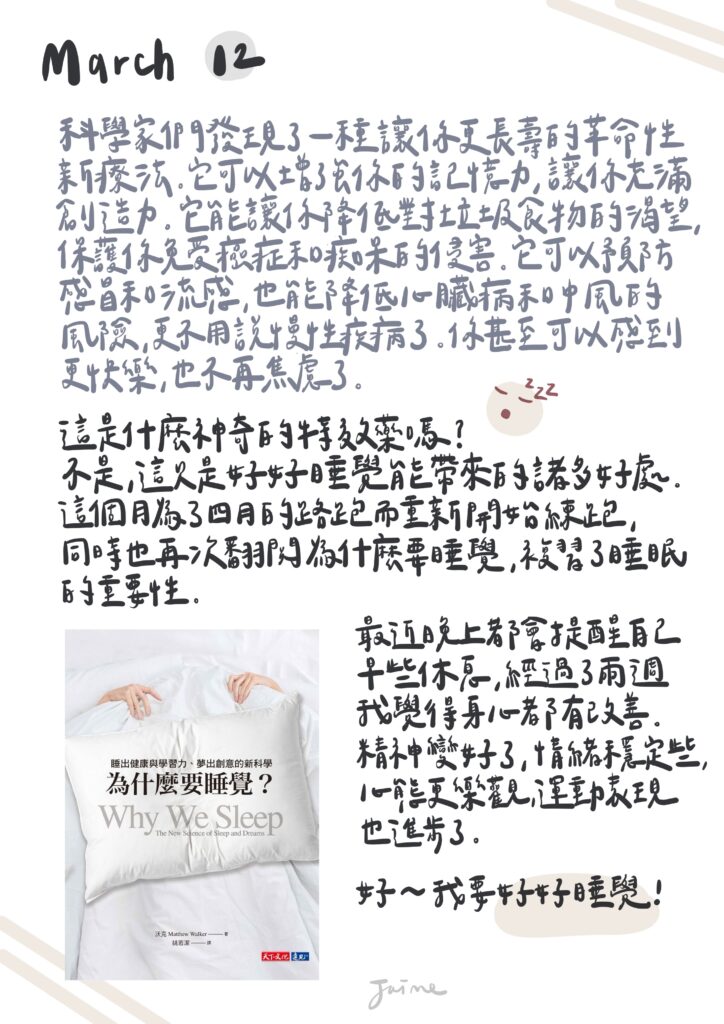 March 12
科學家們發現了一種讓你更長壽的革命性
新療法.它可以增強你的記憶力,讓你充滿
創造力.它能讓你降低對垃圾食物的渴望,
保護你免受癌症和痴呆的侵害.它可以預防
感冒和流感,也能降低心臟病和中風的
風險,更不用說慢性疾病了.你甚至可以感到
更快樂,也不再焦慮了.
zzz
這是什麼神奇的特效藥嗎?
不是,這只是好好睡覺能帶來的諸多好處.
這個月為了四月的路跑而重新開始練跑,
同時也再次翻閱為什麼要睡覺,複習了睡眠
的重要性.
最近晚上都會提醒自己
早些休息,經過了兩週
我覺得身心都有改善.
精神變好了,情緒穩定些,
心態更樂觀,運動表現
也進步了.
好～我要好好睡覺!
睡出健康與學習力、夢出創意的新科學
為什麼要睡覺？
Why We Sleep
The New Science of Sleep and Dreams
沃克 Matthew Walker —— 著
姚若潔 —— 譯
天下文化 遠見
Jaine